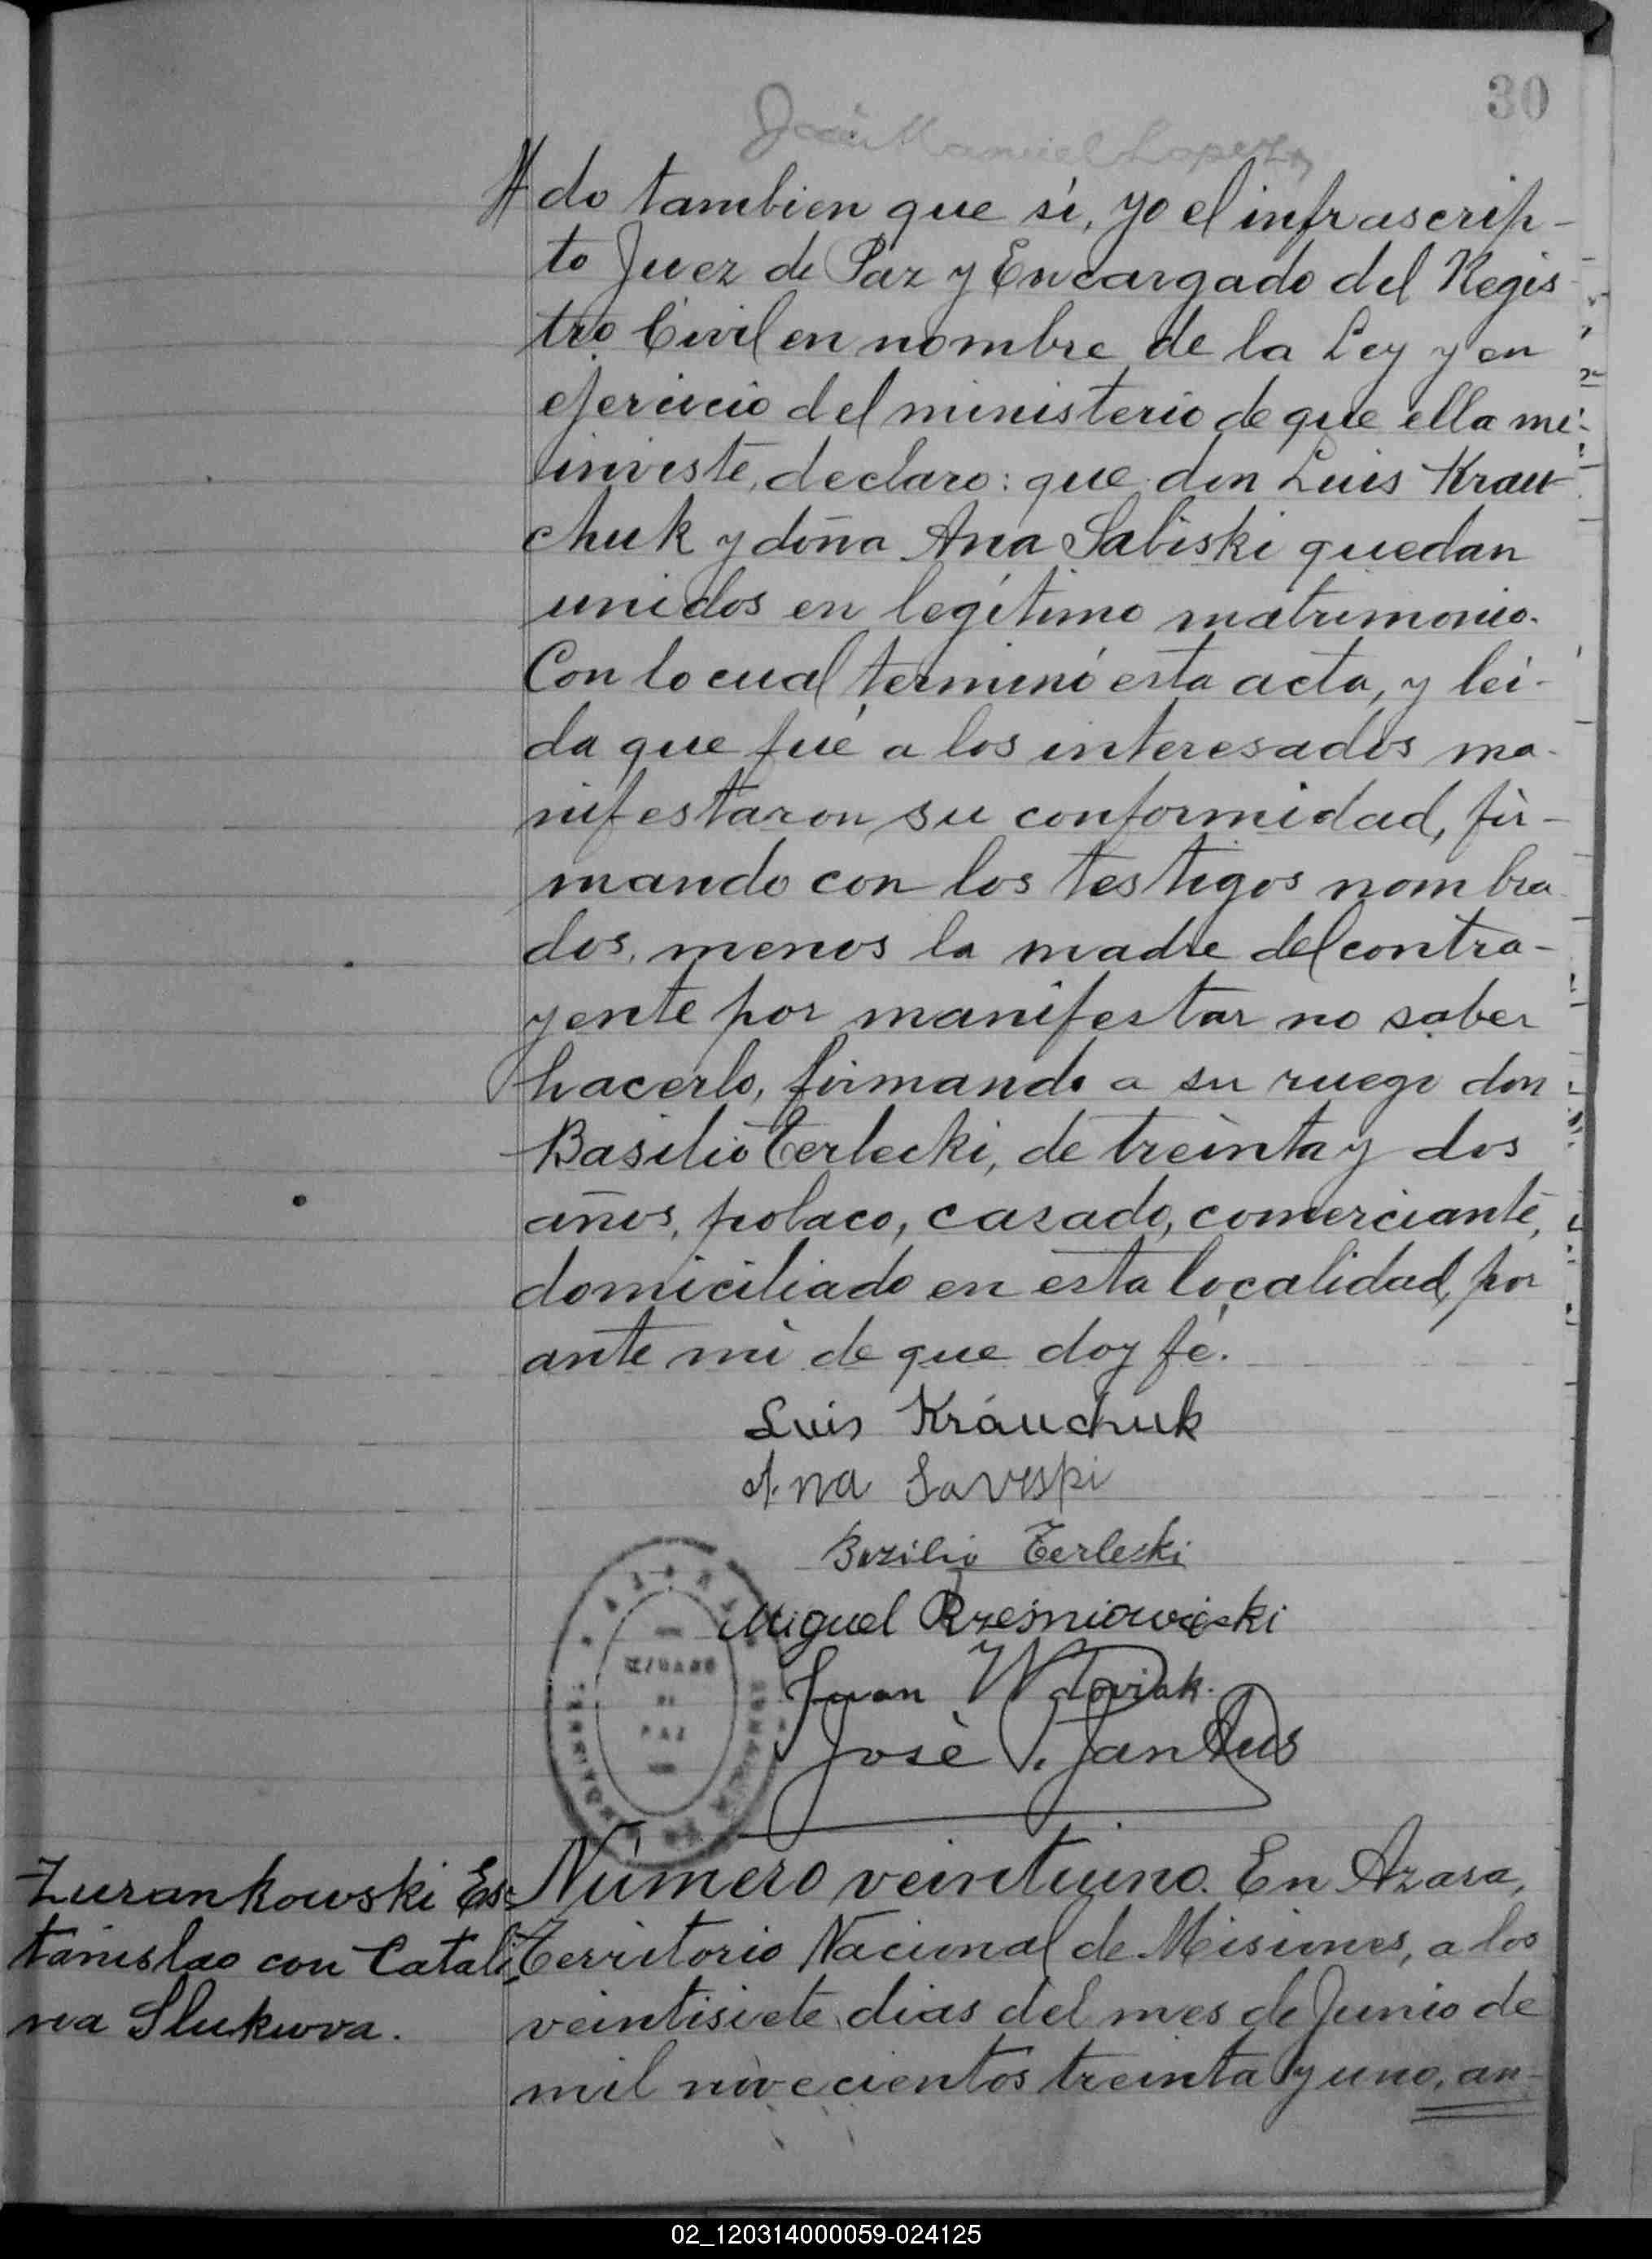 30
José Manuel Lopez
do tambien que sí, yo el infrascrip-
to Juez de Paz y Encargado del Regis
tro Civil en nombre de la Ley y en
ejercicio del ministerio de que ella me
inviste, declaro: que don Luis Krau
chuk y doña Ana Sabiski quedan
unidos en legítimo matrimonio.
Con lo cual terminó esta acta, y lei-
da que fué a los interesados ma-
nifestaron su conformidad, fir-
mando con los testigos nombra
dos, menos la madre del contra-
yente por manifestar no saber
hacerlo, firmando a su ruego don
Basilio Terlecki, de treinta y dos
años, polaco, casado, comerciante,
domiciliado en esta localidad, por
ante mi de que doy fé.
Luis Kráuchuk
Ana Saviski
Bazilio Terleski
Miguel Rzesniowiecki
Juan Wdoviak.
José V. Jantus
JUZGADO
DE
PAZ
Zurankowski Es=
tanislao con Catali-
na Slukuva.
Número veintiuno. En Azara,
Territorio Nacional de Misiones, a los
veintisiete dias del mes de Junio de
mil novecientos treinta y uno, an-
02_120314000059-024125